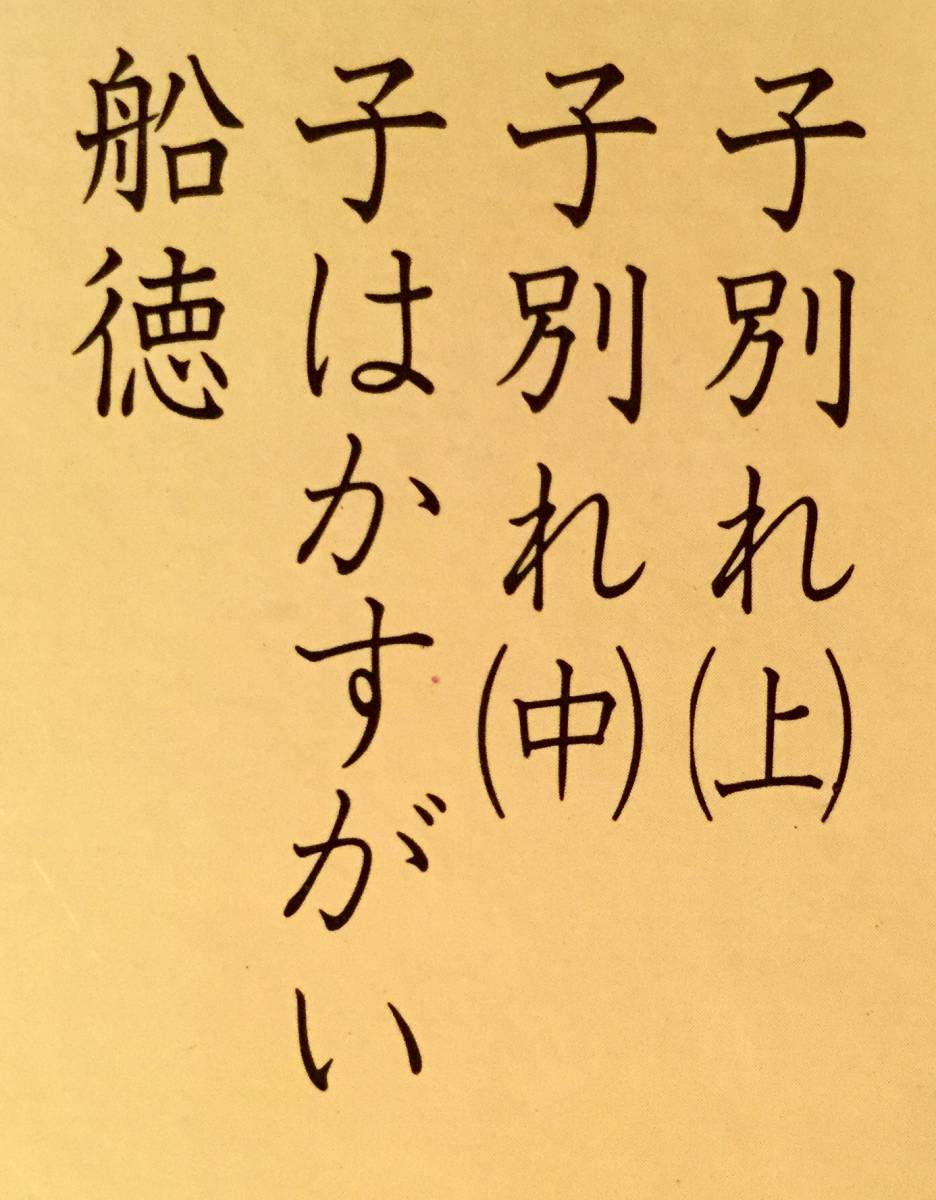 子別れ(上)
子別れ(中)
子はかすがい
船徳